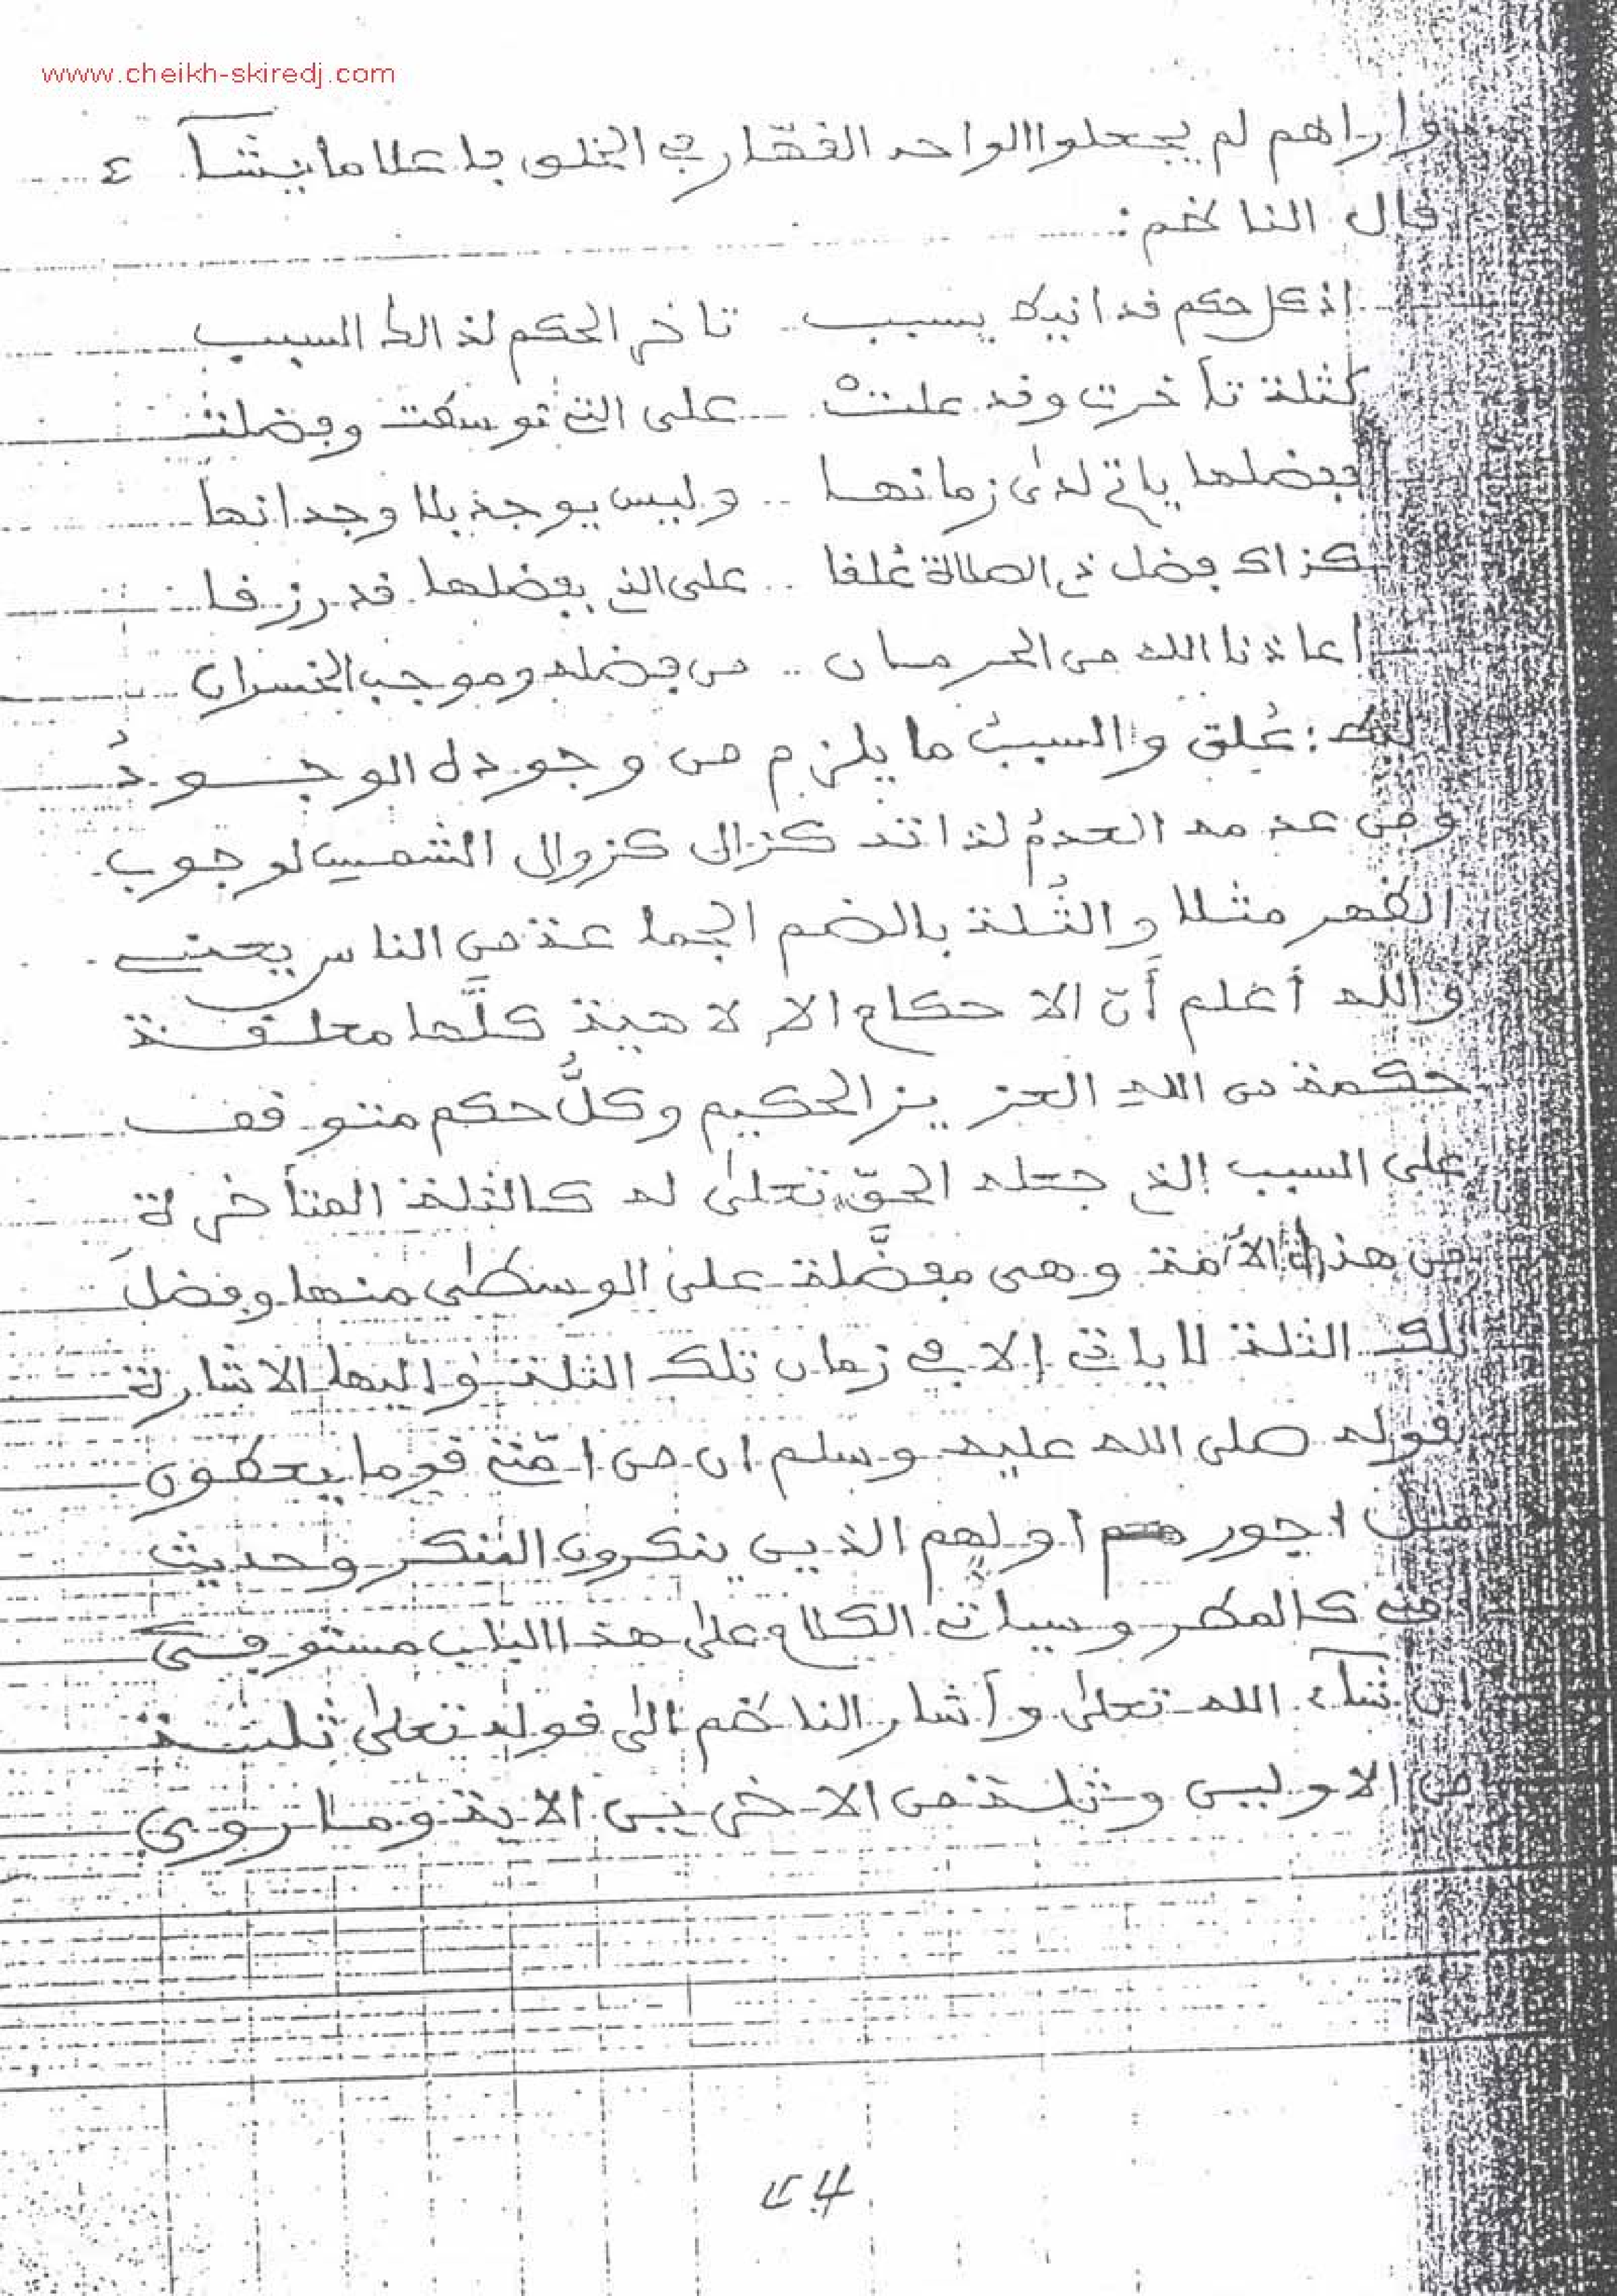 www.cheikh-skiredj.com
واراهم لم يجعلوا الواحد القهّار في الخلق فاعلا ما يشآء
قال الناظم:
اذ كل حكم قد اتى بسبب .. تاخر الحكم لذالك السبب
كثلة تأخرت وقد علتْ .. على التي توسطت وفضلت
ففضلها ياتي لدى زمانها .. وليس يوجد بلا وجدانها
كذاك فضل ذي الصلاة عُلقا .. على الذي بفضلها قد رزقا
أعاذنا الله من الحرمان .. من فضله وموجب الخسران
عُلق والسببُ ما يلزم من وجوده الوجودُ
ومن عدمه العدمُ لذاته كزال كزوال الشمس لوجوب
الظهر مثلا والثُلة بالضم الجماعة من الناس يعني
والله أعلم أن الاحكام الالاهية كلَّها معلقة
حكمة من الله العزيز الحكيم وكلُّ حكم متوقف
على السبب الذي جعله الحقّ تعلى له كالثلة المتأخرة
من هذه الأمة وهى مفضَّلة على الوسطى منها وفضلَ
تلك الثلة لا ياتي إلا في زمان تلك الثلة واليها الاشارة
بقوله صلى الله عليه وسلم ان من امّتي قوما يعطون
مثل اجور هم اولهم الذين ينكرون المنكر وحديث
كالمطر وسيأتي الكلام على هذا الباب مستوفى
ان شآء الله تعلى وأشار الناظم الى قوله تعلى ثلة
من الاولين وثلة من الاخرين الاية وما روي